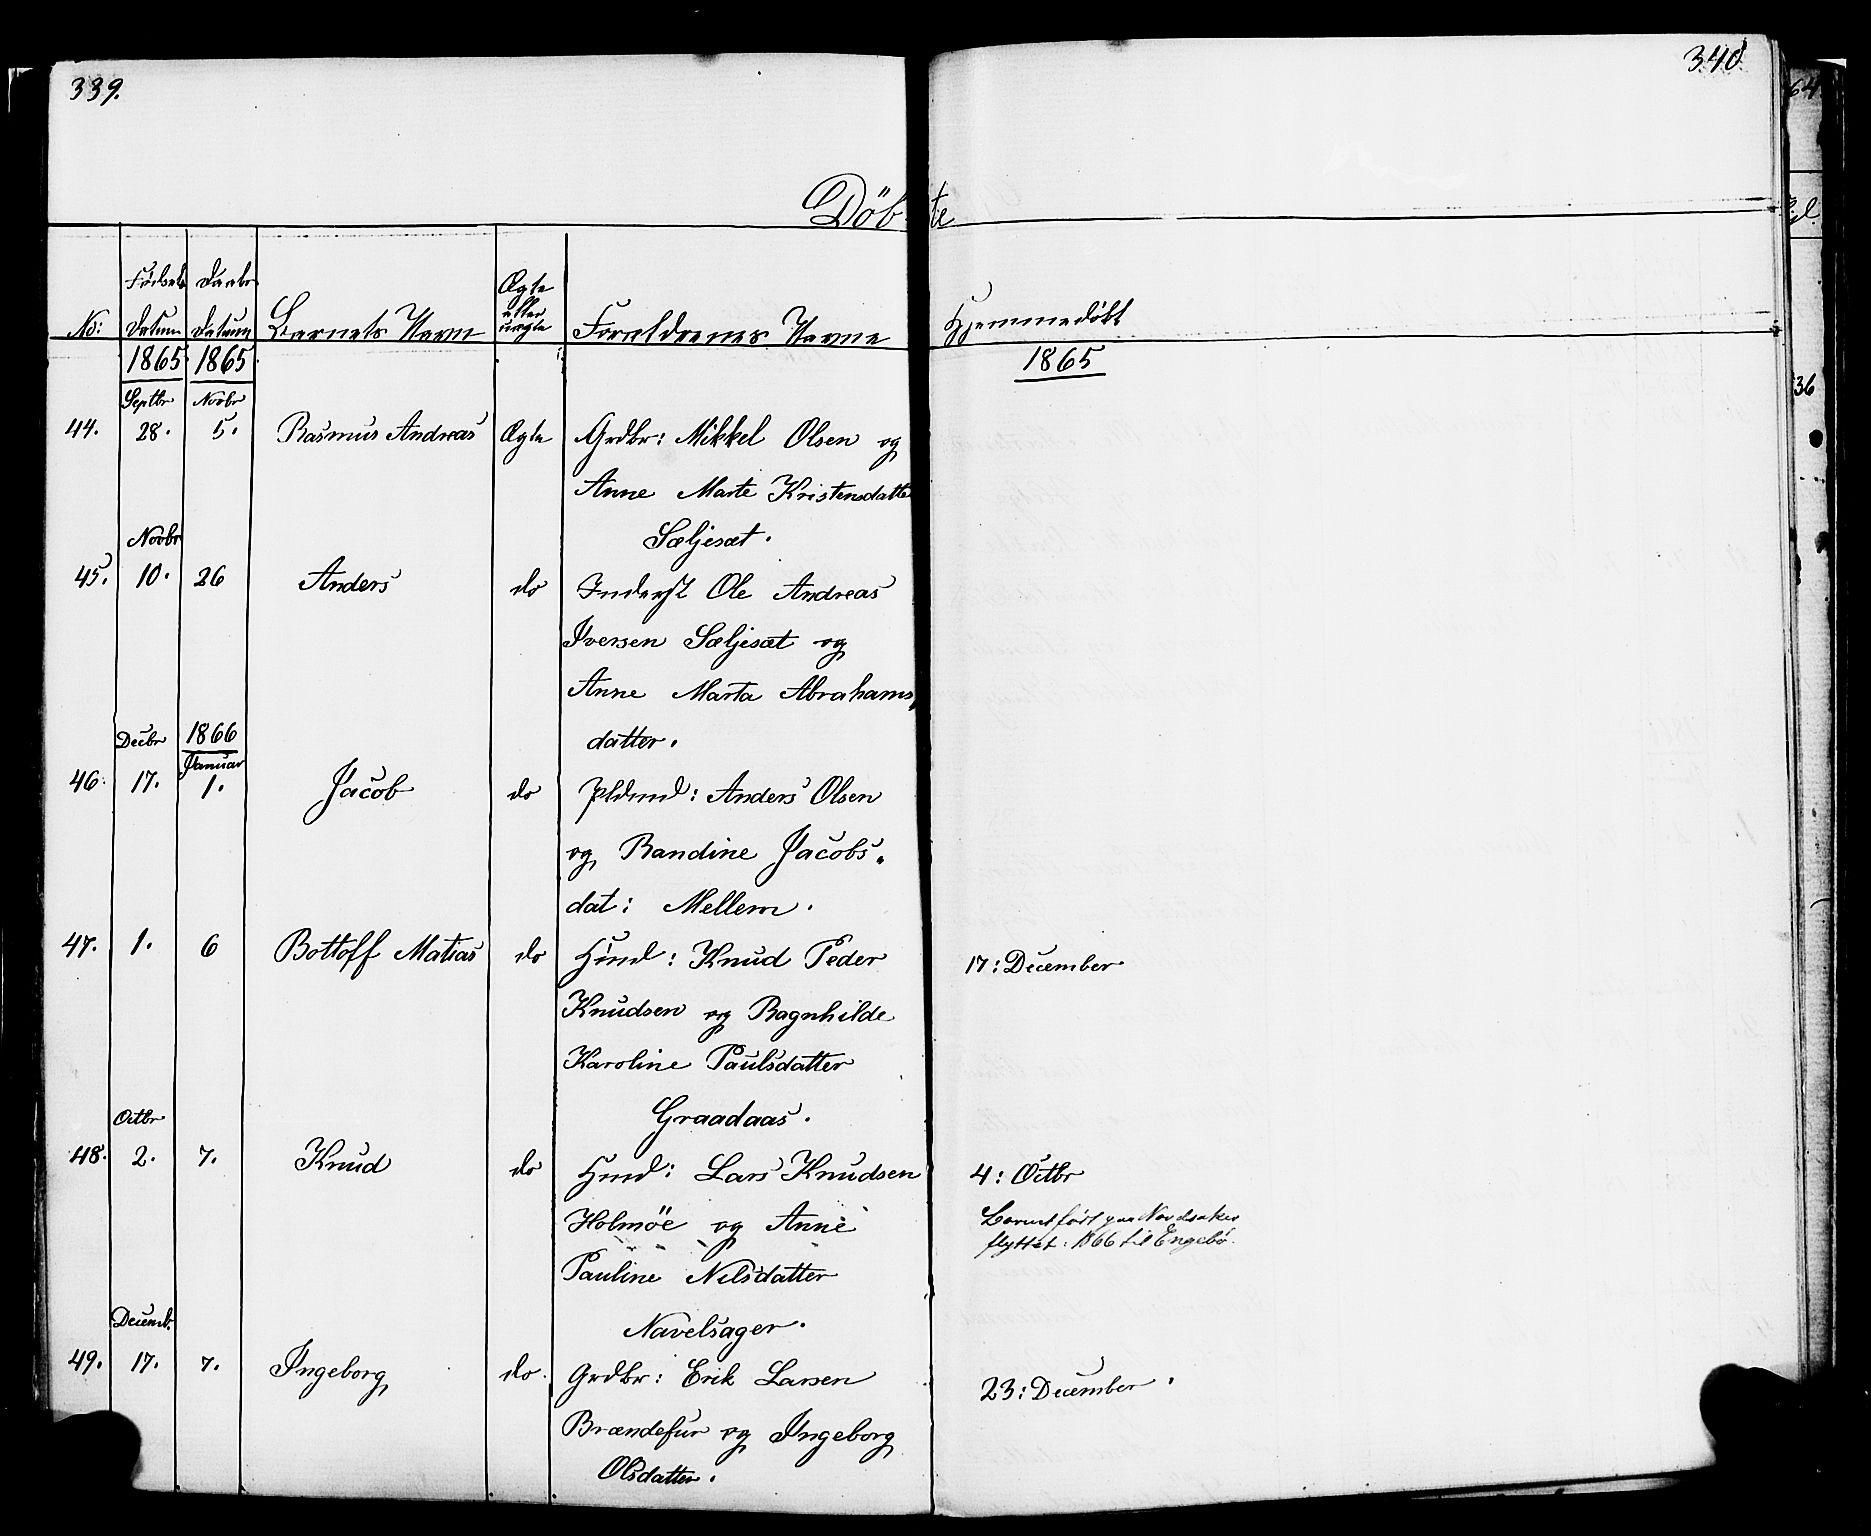 339.
340
Döbte
No: Fødsels Datum Daabs Datum Barnets Navn Ægte eller uægte Forældrenes Navne Hjemmedøbt
1865 1865 1865
Septbr Novbr
44. 28. 5. Rasmus Andreas Ægte Grdbr: Mikkel Olsen og
Anne Marte Kristensdatte
Sæljesæt.
Novbr
45. 10. 26 Anders do Inderst Ole Andreas
Iversen Sæljesæt og
Anne Marta Abrahams
datter.
Decbr 1866
Januar
46. 17. 1. Jacob do Pldmd: Anders Olsen
og Randine Jacobs
dat: Mellem.
47. 1. 6 Bottoff Matias do Hmd: Knud Peder 17: December
Knudsen og Ragnhilde
Karoline Paulsdatter
Graadaas.
Octbr
48. 2. 7. Knud do Hmd: Lars Knudsen 4: Octbr
Holmöe og Anne Barnet født paa Nordsaker
flyttet: 1866 til Engebö.
Pauline Nilsdatter
Navelsager.
Decemb.
49. 17. 7. Ingeborg do. Grdbr: Erik Larsen 23: December.
Brændefur og Ingeborg
Olsdatter.
64
36